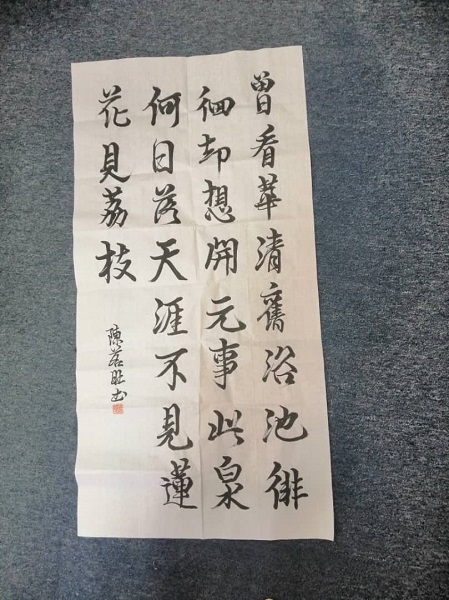 曾看華清舊浴池徘
徊却想開元事此泉
何日落天涯不見蓮
花見荔枝
陳若书